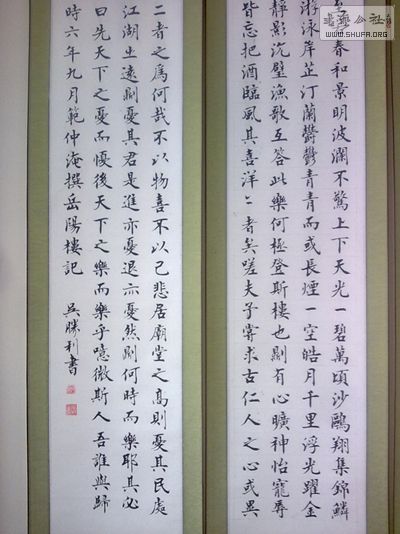 至若春和景明波瀾不驚上下天光一碧萬頃沙鷗翔集錦鱗
游泳岸芷汀蘭鬱鬱青青而或長煙一空皓月千里浮光躍金
靜影沉璧漁歌互答此樂何極登斯樓也則有心曠神怡寵辱
皆忘把酒臨風其喜洋〻者矣嗟夫予嘗求古仁人之心或異
二者之為何哉不以物喜不以己悲居廟堂之高則憂其民處
江湖之遠則憂其君是進亦憂退亦憂然則何時而樂耶其必
曰先天下之憂而憂後天下之樂而樂乎噫微斯人吾誰與歸
時六年九月範仲淹撰岳陽樓記 吳勝利書
WWW.SHUFA.ORG